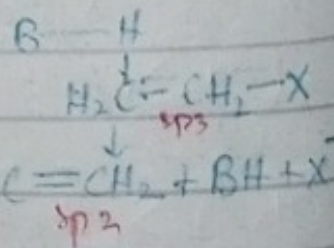 B H
H₂C = CH₂—X
sp3
C = CH₂ + BH + X⁻
sp2